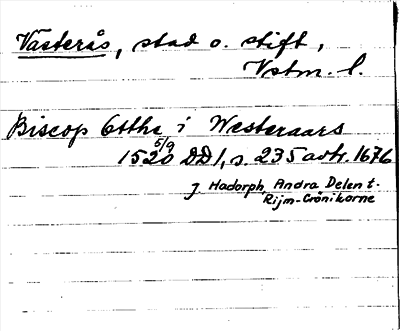 Västerås, stad o. stift,
Vstm. l.
Biscop Otthe i Westeraars
5/9
1520 DD1, s. 235 avtr. 1676
J Hadorph, Andra Delen t.
Rijm-Crönikorne